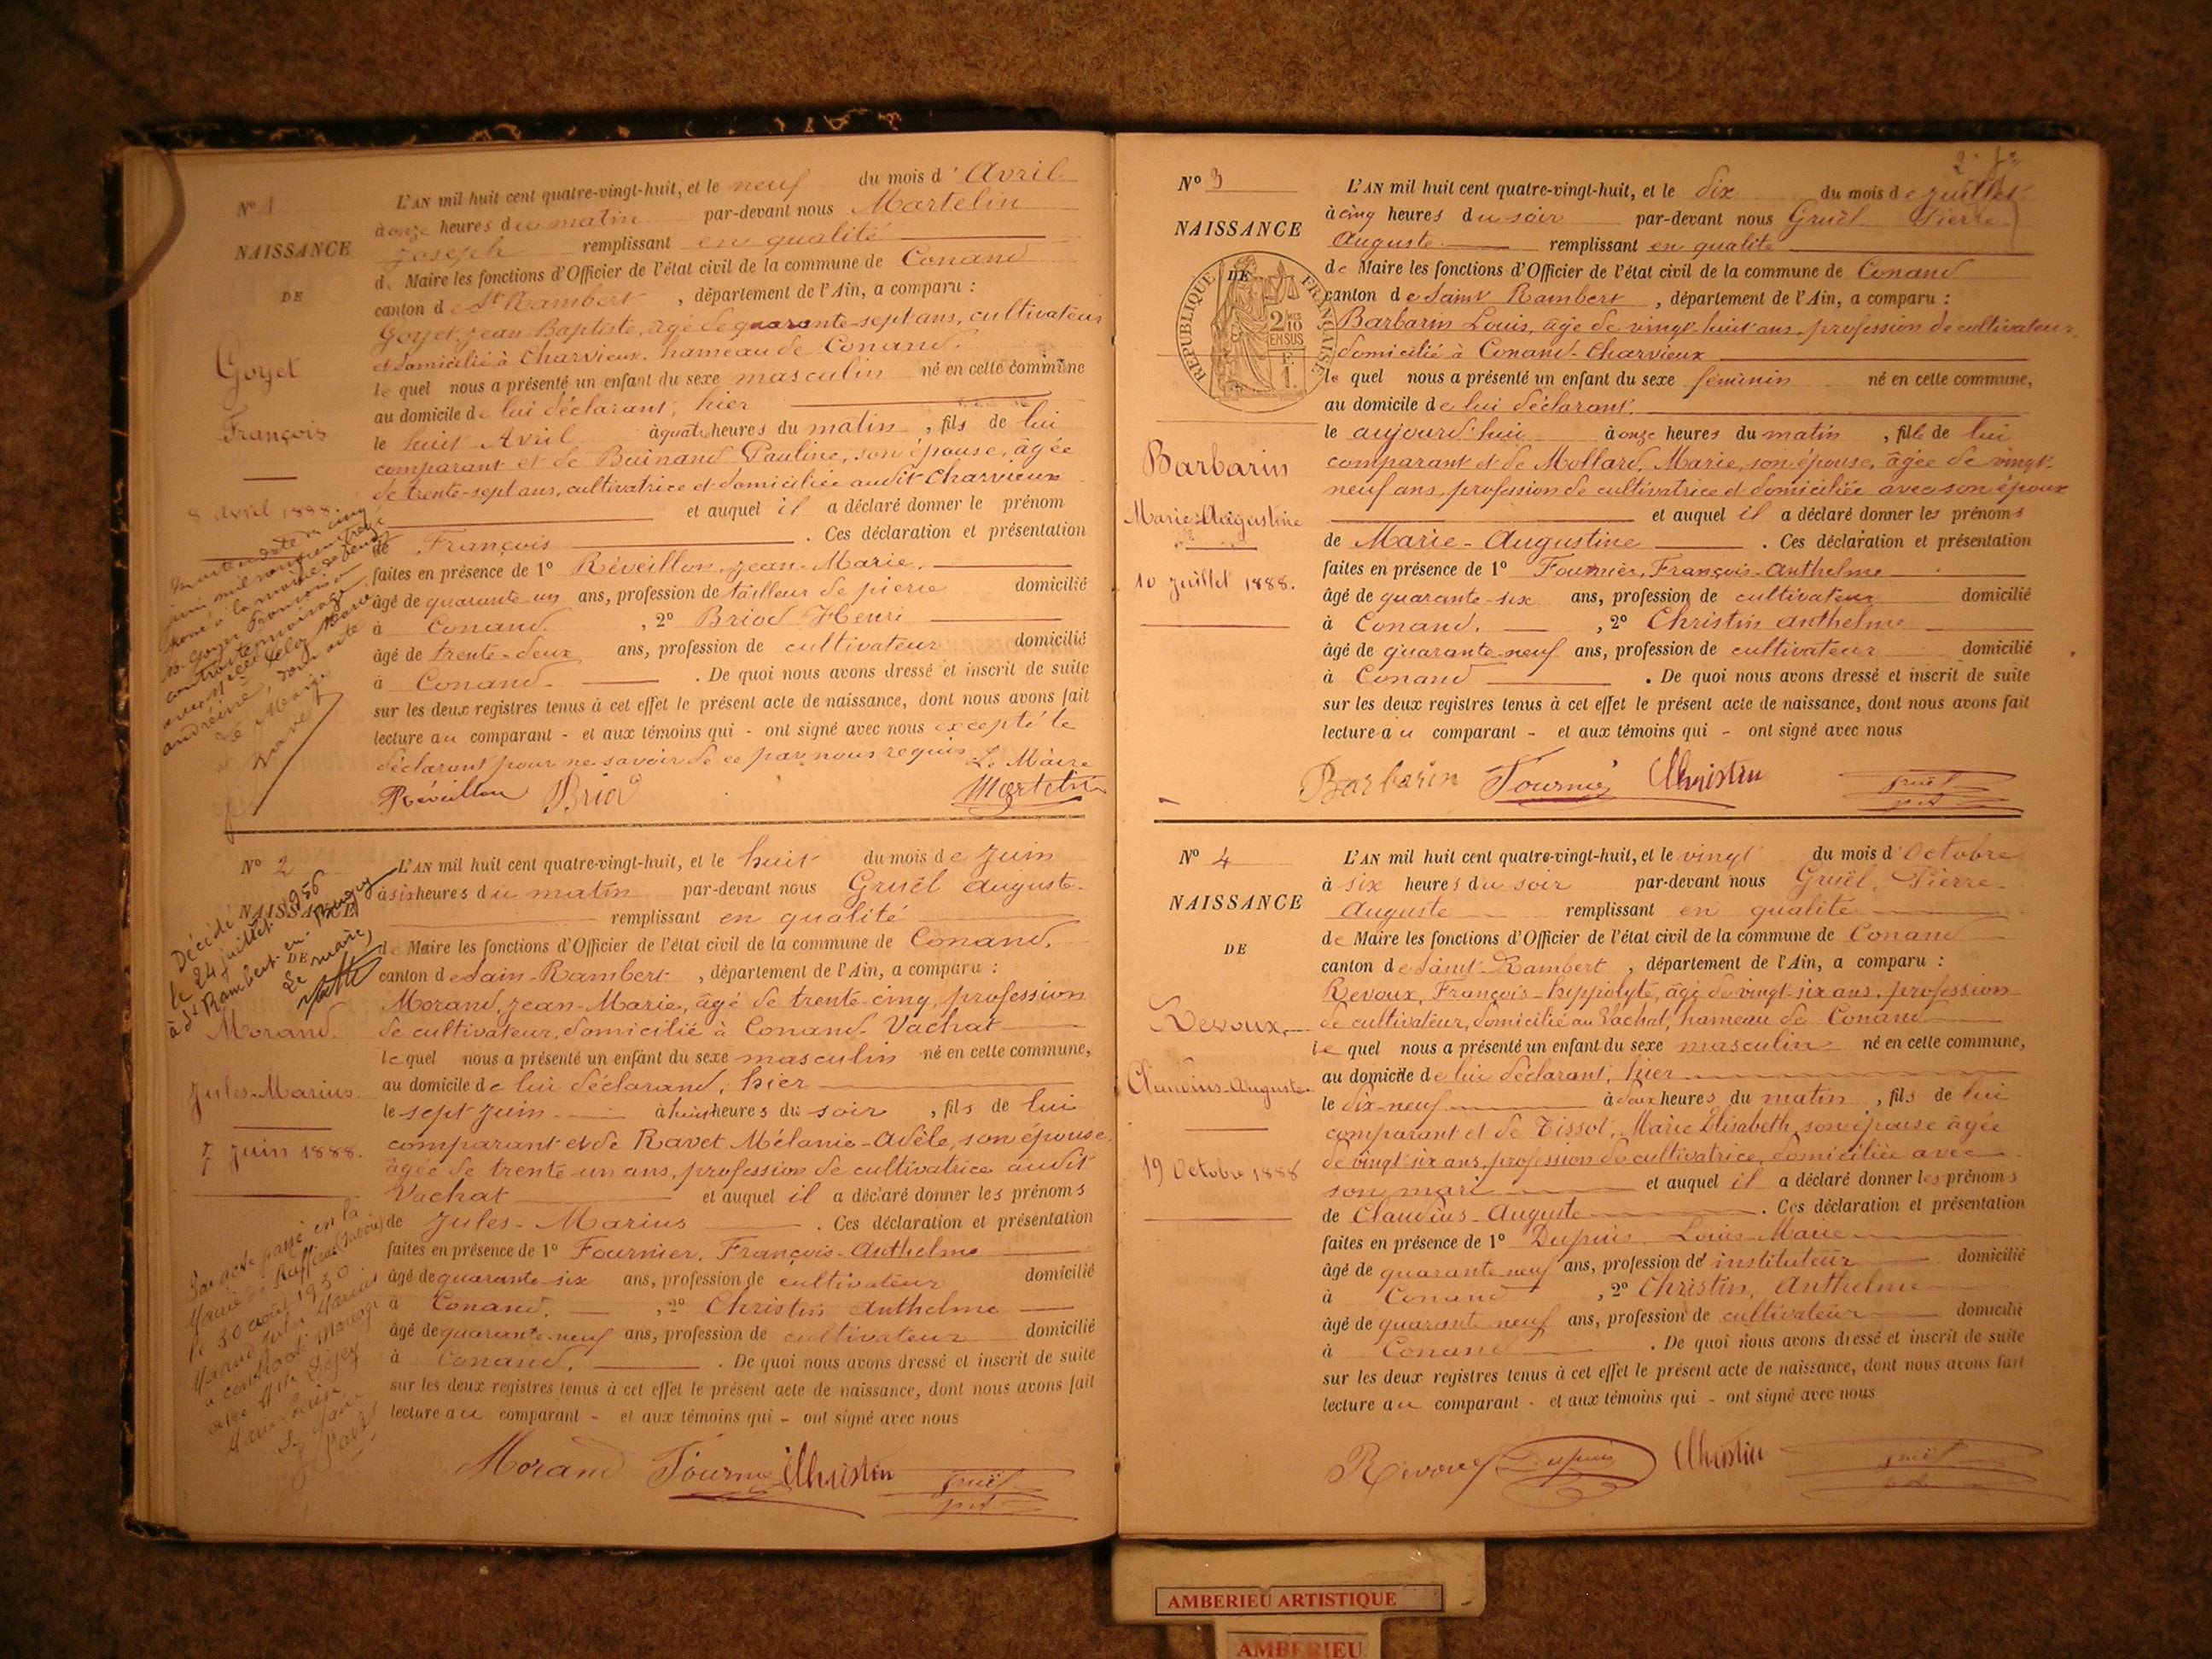 N° 1
NAISSANCE
DE
Goyet
François
8 avril 1888.
L'AN mil huit cent quatre-vingt-huit, et le neuf du mois d'Avril
à onze heures du matin par-devant nous Martelin
Joseph remplissant en qualité
de Maire les fonctions d'Officier de l'état civil de la commune de Conand
canton de St Rambert, département de l'Ain, a comparu :
Goyet Jean Baptiste, âgé de quarante-sept ans, cultivateur
et domicilié à Charvieux, hameau de Conand.
lequel nous a présenté un enfant du sexe masculin né en cette commune
au domicile de lui déclarant, hier
le huit Avril à quatre heures du matin, fils de lui
comparant et de Buinand Pauline, son épouse, âgée
de trente-sept ans, cultivatrice et domiciliée audit Charvieux
et auquel il a déclaré donner le prénom
de François. Ces déclaration et présentation
faites en présence de 1° Réveillon, Jean-Marie,
âgé de quarante un ans, profession de tailleur de pierre domicilié
à Conand, 2° Briod Henri
âgé de trente-deux ans, profession de cultivateur domicilié
à Conand. De quoi nous avons dressé et inscrit de suite
sur les deux registres tenus à cet effet le présent acte de naissance, dont nous avons fait
lecture au comparant - et aux témoins qui - ont signé avec nous excepté le
déclarant pour ne savoir de ce par nous requis Le Maire
Réveillon Briod Martelin
N° 2
NAISSANCE
DE
Décédé
le 24 juillet 1956
à St Rambert-en-Bugey
Le maire,
Morand.
Jules-Marius.
7 Juin 1888.
Par acte passé en la
Mairie de Ruffieux (Savoie)
le 30 août 1930
Morand Jules Marius
a contracté Mariage
avec Melle
Marie Louise
Le Maire
L'AN mil huit cent quatre-vingt-huit, et le huit du mois de Juin
à six heures du matin par-devant nous Gruël Auguste-
remplissant en qualité
de Maire les fonctions d'Officier de l'état civil de la commune de Conand.
canton de Sain-Rambert, département de l'Ain, a comparu :
Morand, Jean-Marie, âgé de trente-cinq, profession
de cultivateur, domicilié à Conand-Vachat
lequel nous a présenté un enfant du sexe masculin né en cette commune,
au domicile de lui déclarand, hier
le sept Juin à huit heures du soir, fils de lui
comparant et de Ravet Mélanie-Adèle, son épouse,
âgée de trente-un ans, profession de cultivatrice audit
Vachat et auquel il a déclaré donner les prénoms
de Jules-Marius. Ces déclaration et présentation
faites en présence de 1° Fournier, François-Anthelme
âgé de quarante-six ans, profession de cultivateur domicilié
à Conand., 2° Christin Anthelme
âgé de quarante-neuf ans, profession de cultivateur domicilié
à Conand. De quoi nous avons dressé et inscrit de suite
sur les deux registres tenus à cet effet le présent acte de naissance, dont nous avons fait
lecture au comparant - et aux témoins qui - ont signé avec nous
Morand Fournier Christin Gruël
N° 3
NAISSANCE
DE
RÉPUBLIQUE FRANÇAISE
2/10 EN SUS
Barbarin
Marie-Augustine
10 Juillet 1888.
L'AN mil huit cent quatre-vingt-huit, et le dix du mois de Juillet
à cinq heures du soir par-devant nous Gruël Pierre
Auguste remplissant en qualité
de Maire les fonctions d'Officier de l'état civil de la commune de Conand
canton de Saint Rambert, département de l'Ain, a comparu :
Barbarin Louis, âgé de vingt-huit ans, profession de cultivateur,
domicilié à Conand-Charvieux
lequel nous a présenté un enfant du sexe féminin né en cette commune,
au domicile de lui déclarant.
le aujourd'hui à onze heures du matin, fille de lui
comparant et de Mollard, Marie, son épouse, âgée de vingt-
neuf ans, profession de cultivatrice et domiciliée avec son époux
et auquel il a déclaré donner les prénoms
de Marie-Augustine. Ces déclaration et présentation
faites en présence de 1° Fournier, François-Anthelme
âgé de quarante-six ans, profession de cultivateur domicilié
à Conand., 2° Christin Anthelme
âgé de quarante-neuf ans, profession de cultivateur domicilié
à Conand. De quoi nous avons dressé et inscrit de suite
sur les deux registres tenus à cet effet le présent acte de naissance, dont nous avons fait
lecture au comparant - et aux témoins qui - ont signé avec nous
Barbarin Fournier Christin Gruël
N° 4
NAISSANCE
DE
Revoux,
Claudius-Auguste.
19 Octobre 1888
L'AN mil huit cent quatre-vingt-huit, et le vingt du mois d'Octobre
à six heures du soir par-devant nous Gruël, Pierre-
Auguste remplissant en qualité
de Maire les fonctions d'Officier de l'état civil de la commune de Conand
canton de Saint-Rambert, département de l'Ain, a comparu :
Revoux, François-hippolyte, âgé de vingt-six ans, profession
de cultivateur, domicilié au Vachat, hameau de Conand
lequel nous a présenté un enfant du sexe masculin né en cette commune,
au domicile de lui déclarant, hier
le dix-neuf à deux heures du matin, fils de lui
comparant et de Tissot, Marie Elisabeth, son épouse âgée
de vingt six ans, profession de cultivatrice, domiciliée avec
son mari et auquel il a déclaré donner les prénoms
de Claudius-Auguste. Ces déclaration et présentation
faites en présence de 1° Dupuis Louis-Marie
âgé de quarante-neuf ans, profession de instituteur domicilié
à Conand, 2° Christin, Anthelme
âgé de quarante neuf ans, profession de cultivateur domicilié
à Conand. De quoi nous avons dressé et inscrit de suite
sur les deux registres tenus à cet effet le présent acte de naissance, dont nous avons fait
lecture au comparant - et aux témoins qui - ont signé avec nous
Revoux Dupuis Christin Gruël
AMBERIEU ARTISTIQUE
AMBERIEU